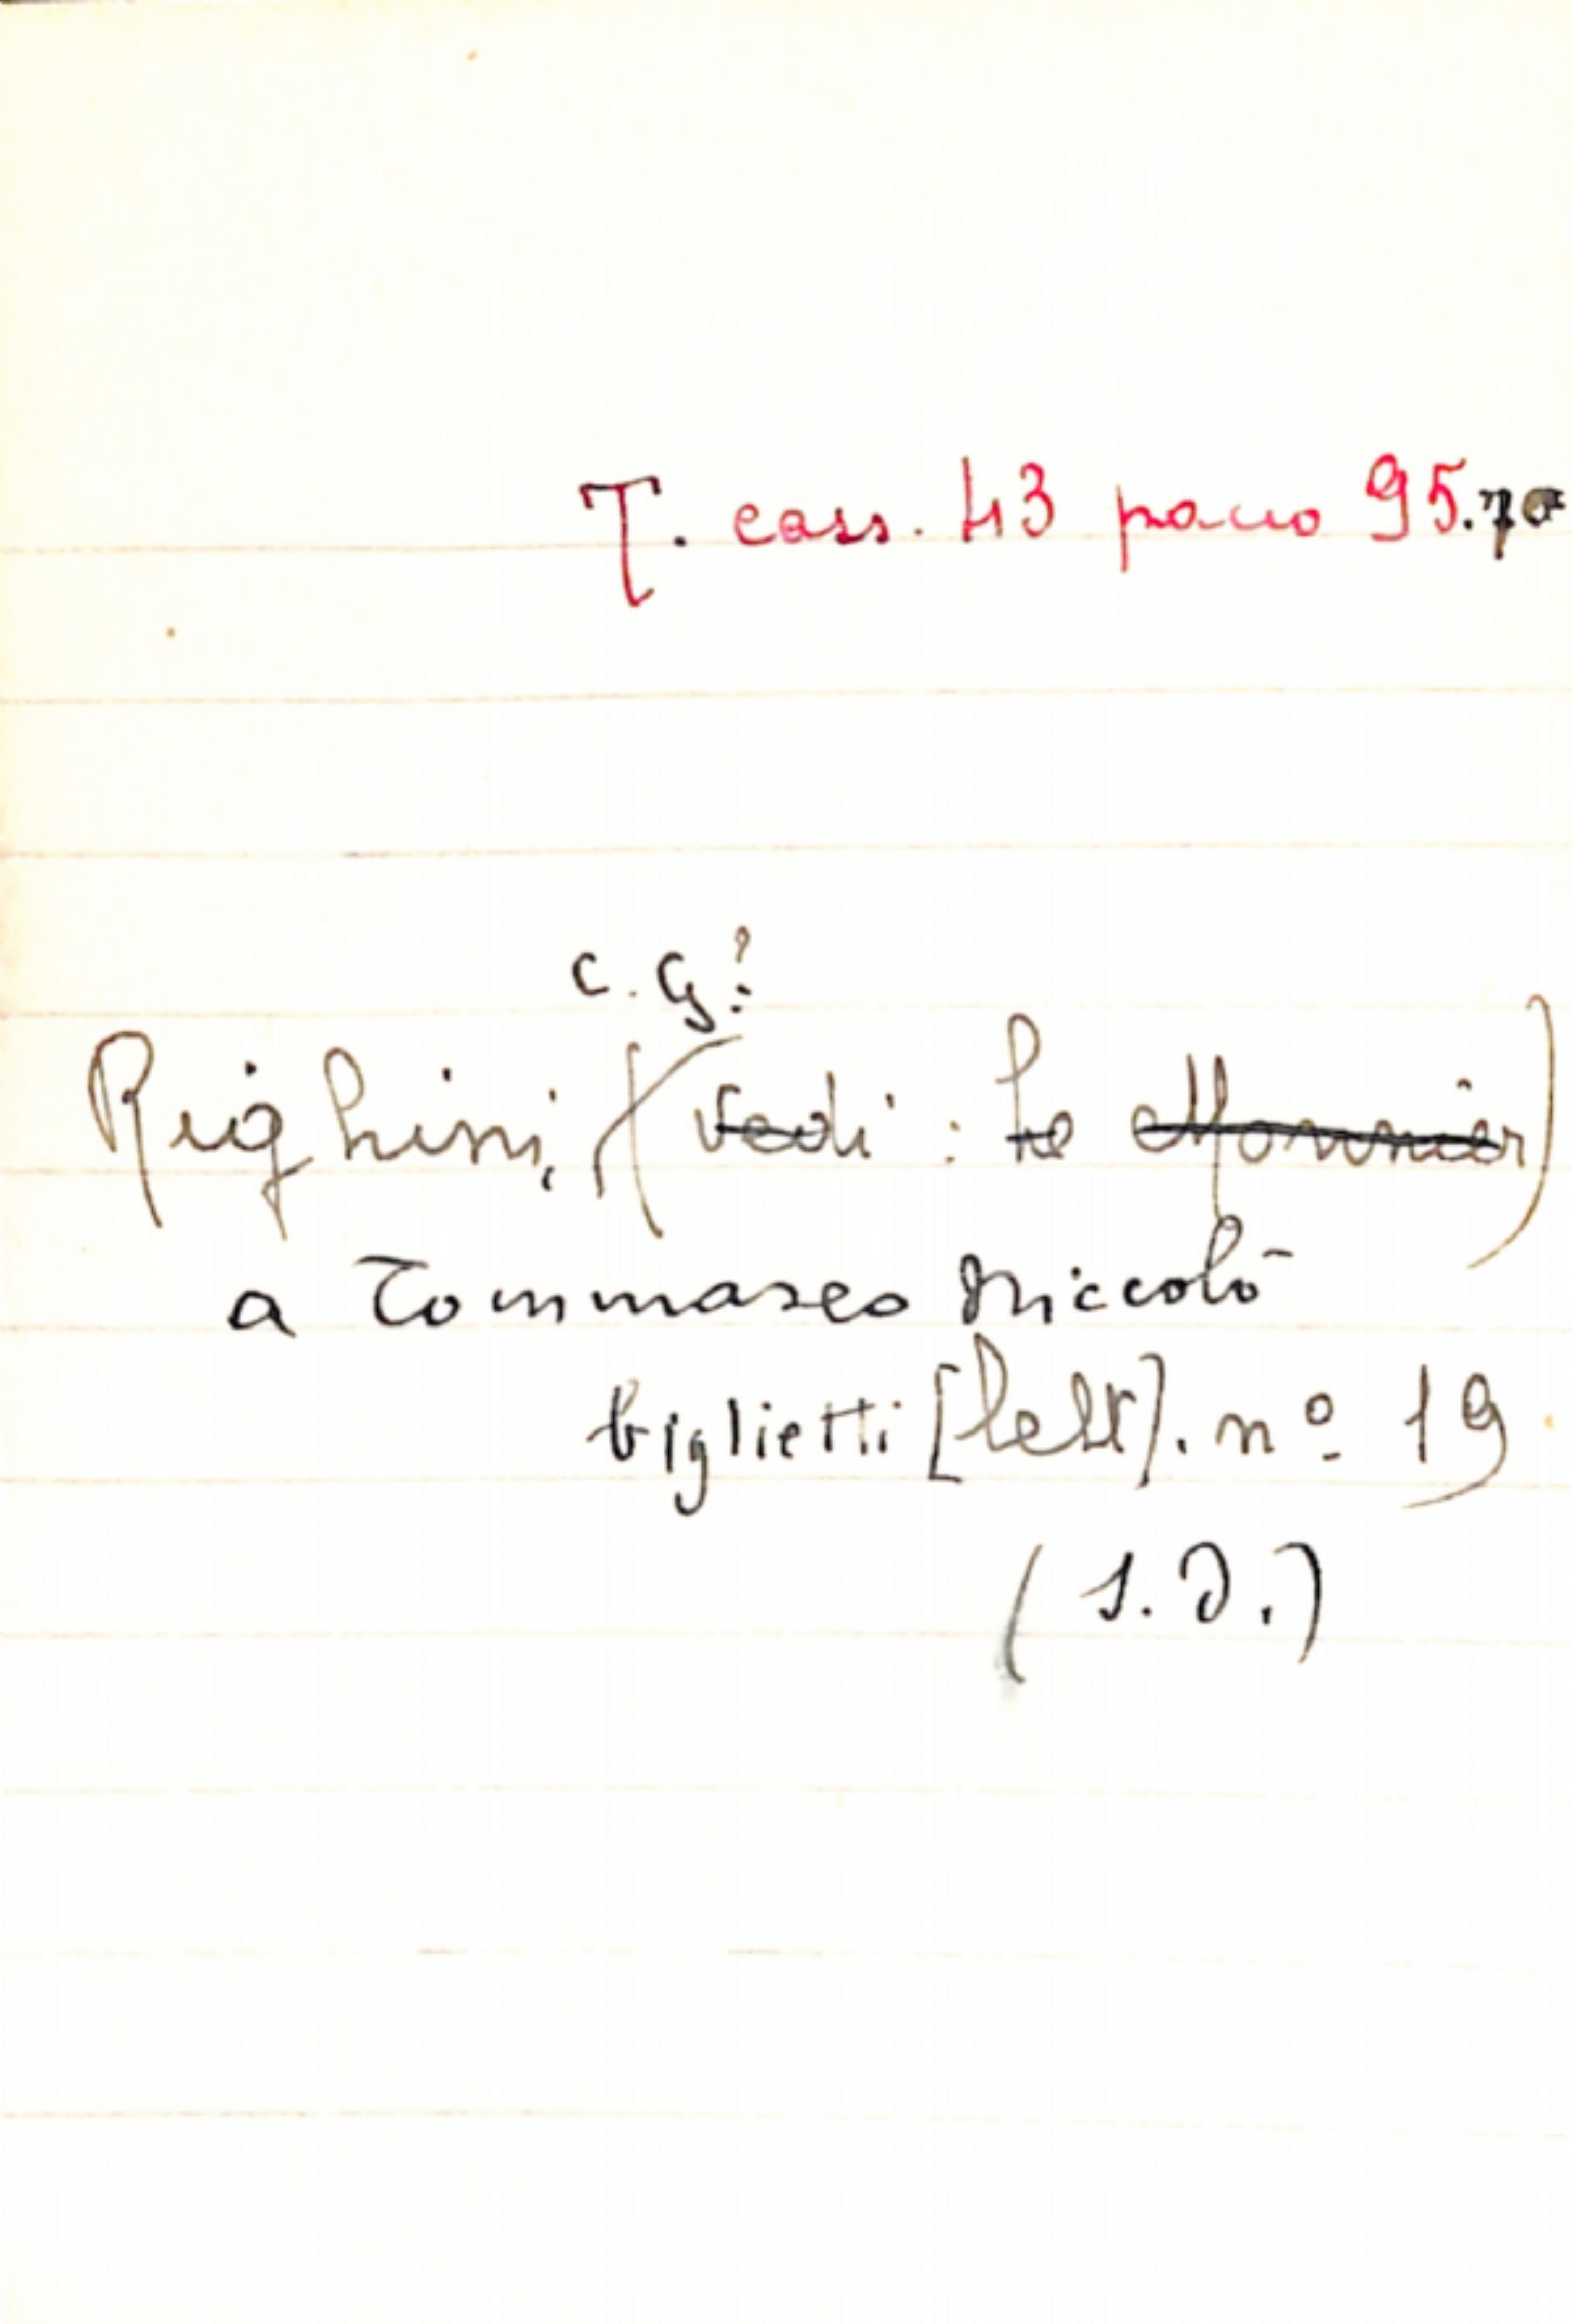 T. cass. 43 pacco 95.70
C. G?
Righini, (vedi: Le Monnier)
a Tommaseo Niccolò
biglietti [lett]. nº 19
(s.d.)